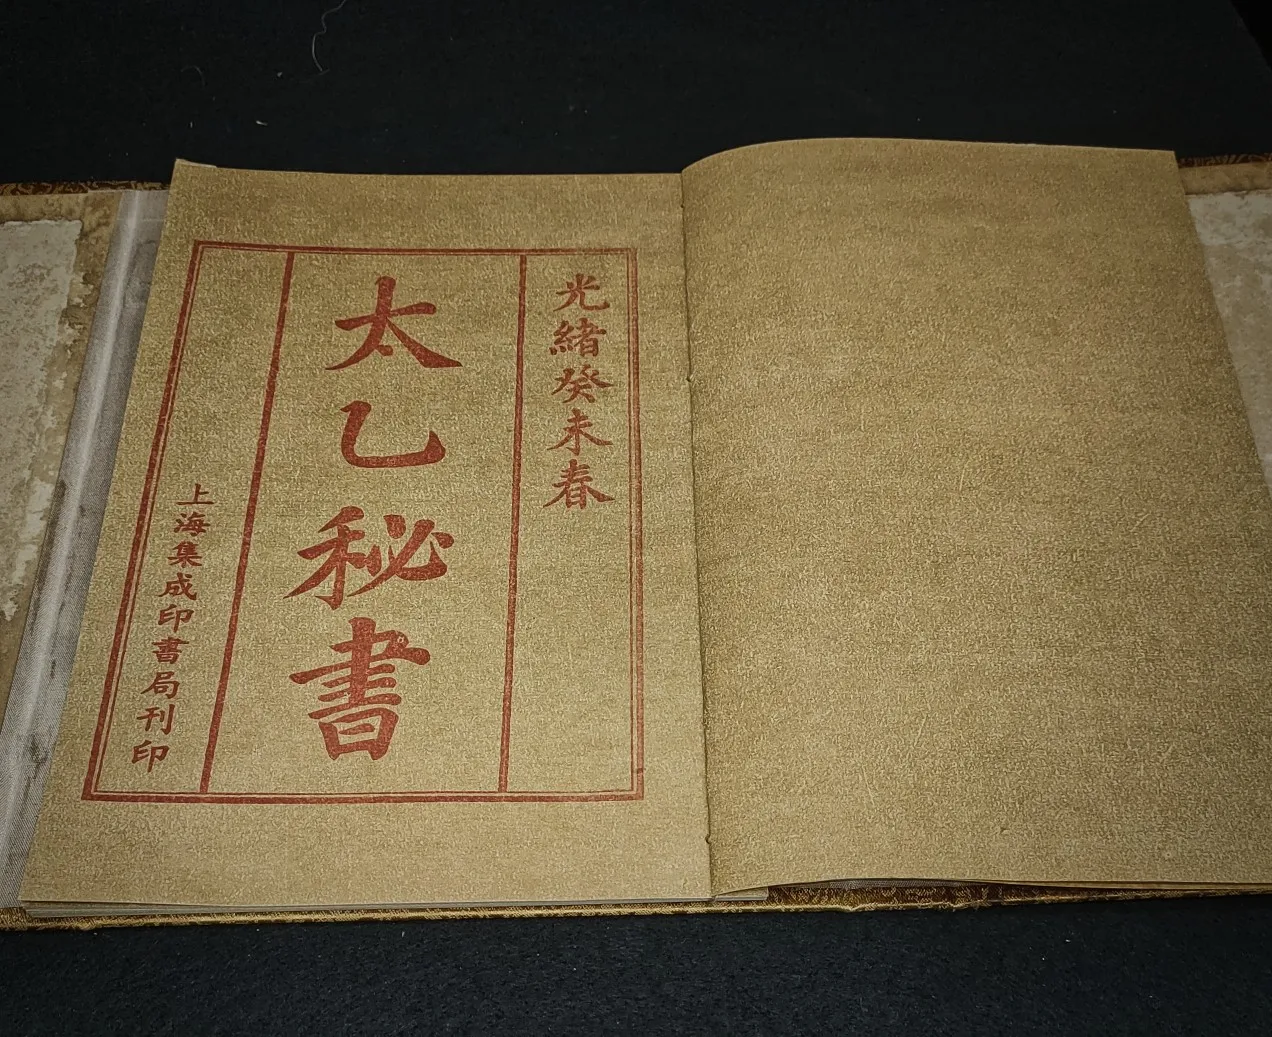 光緒癸未春
太乙秘書
上海集成印書局刊印